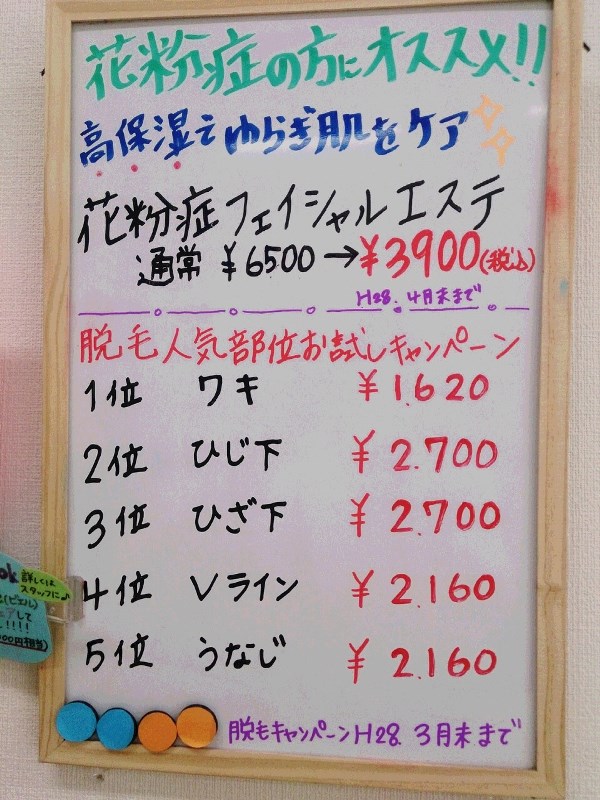 花粉症の方にオススメ!!
高保湿でゆらぎ肌をケア
花粉症フェイシャルエステ
通常 ¥6500→¥3900(税込)
H28. 4月末まで
脱毛人気部位お試しキャンペーン
1位 ワキ ¥1.620
2位 ひじ下 ¥2.700
3位 ひざ下 ¥2.700
4位 Vライン ¥2.160
5位 うなじ ¥2.160
脱毛キャンペーンH28. 3月末まで
ok 詳しくは
スタッフに♪
(ピエル)
して
!!!!
00円相当)